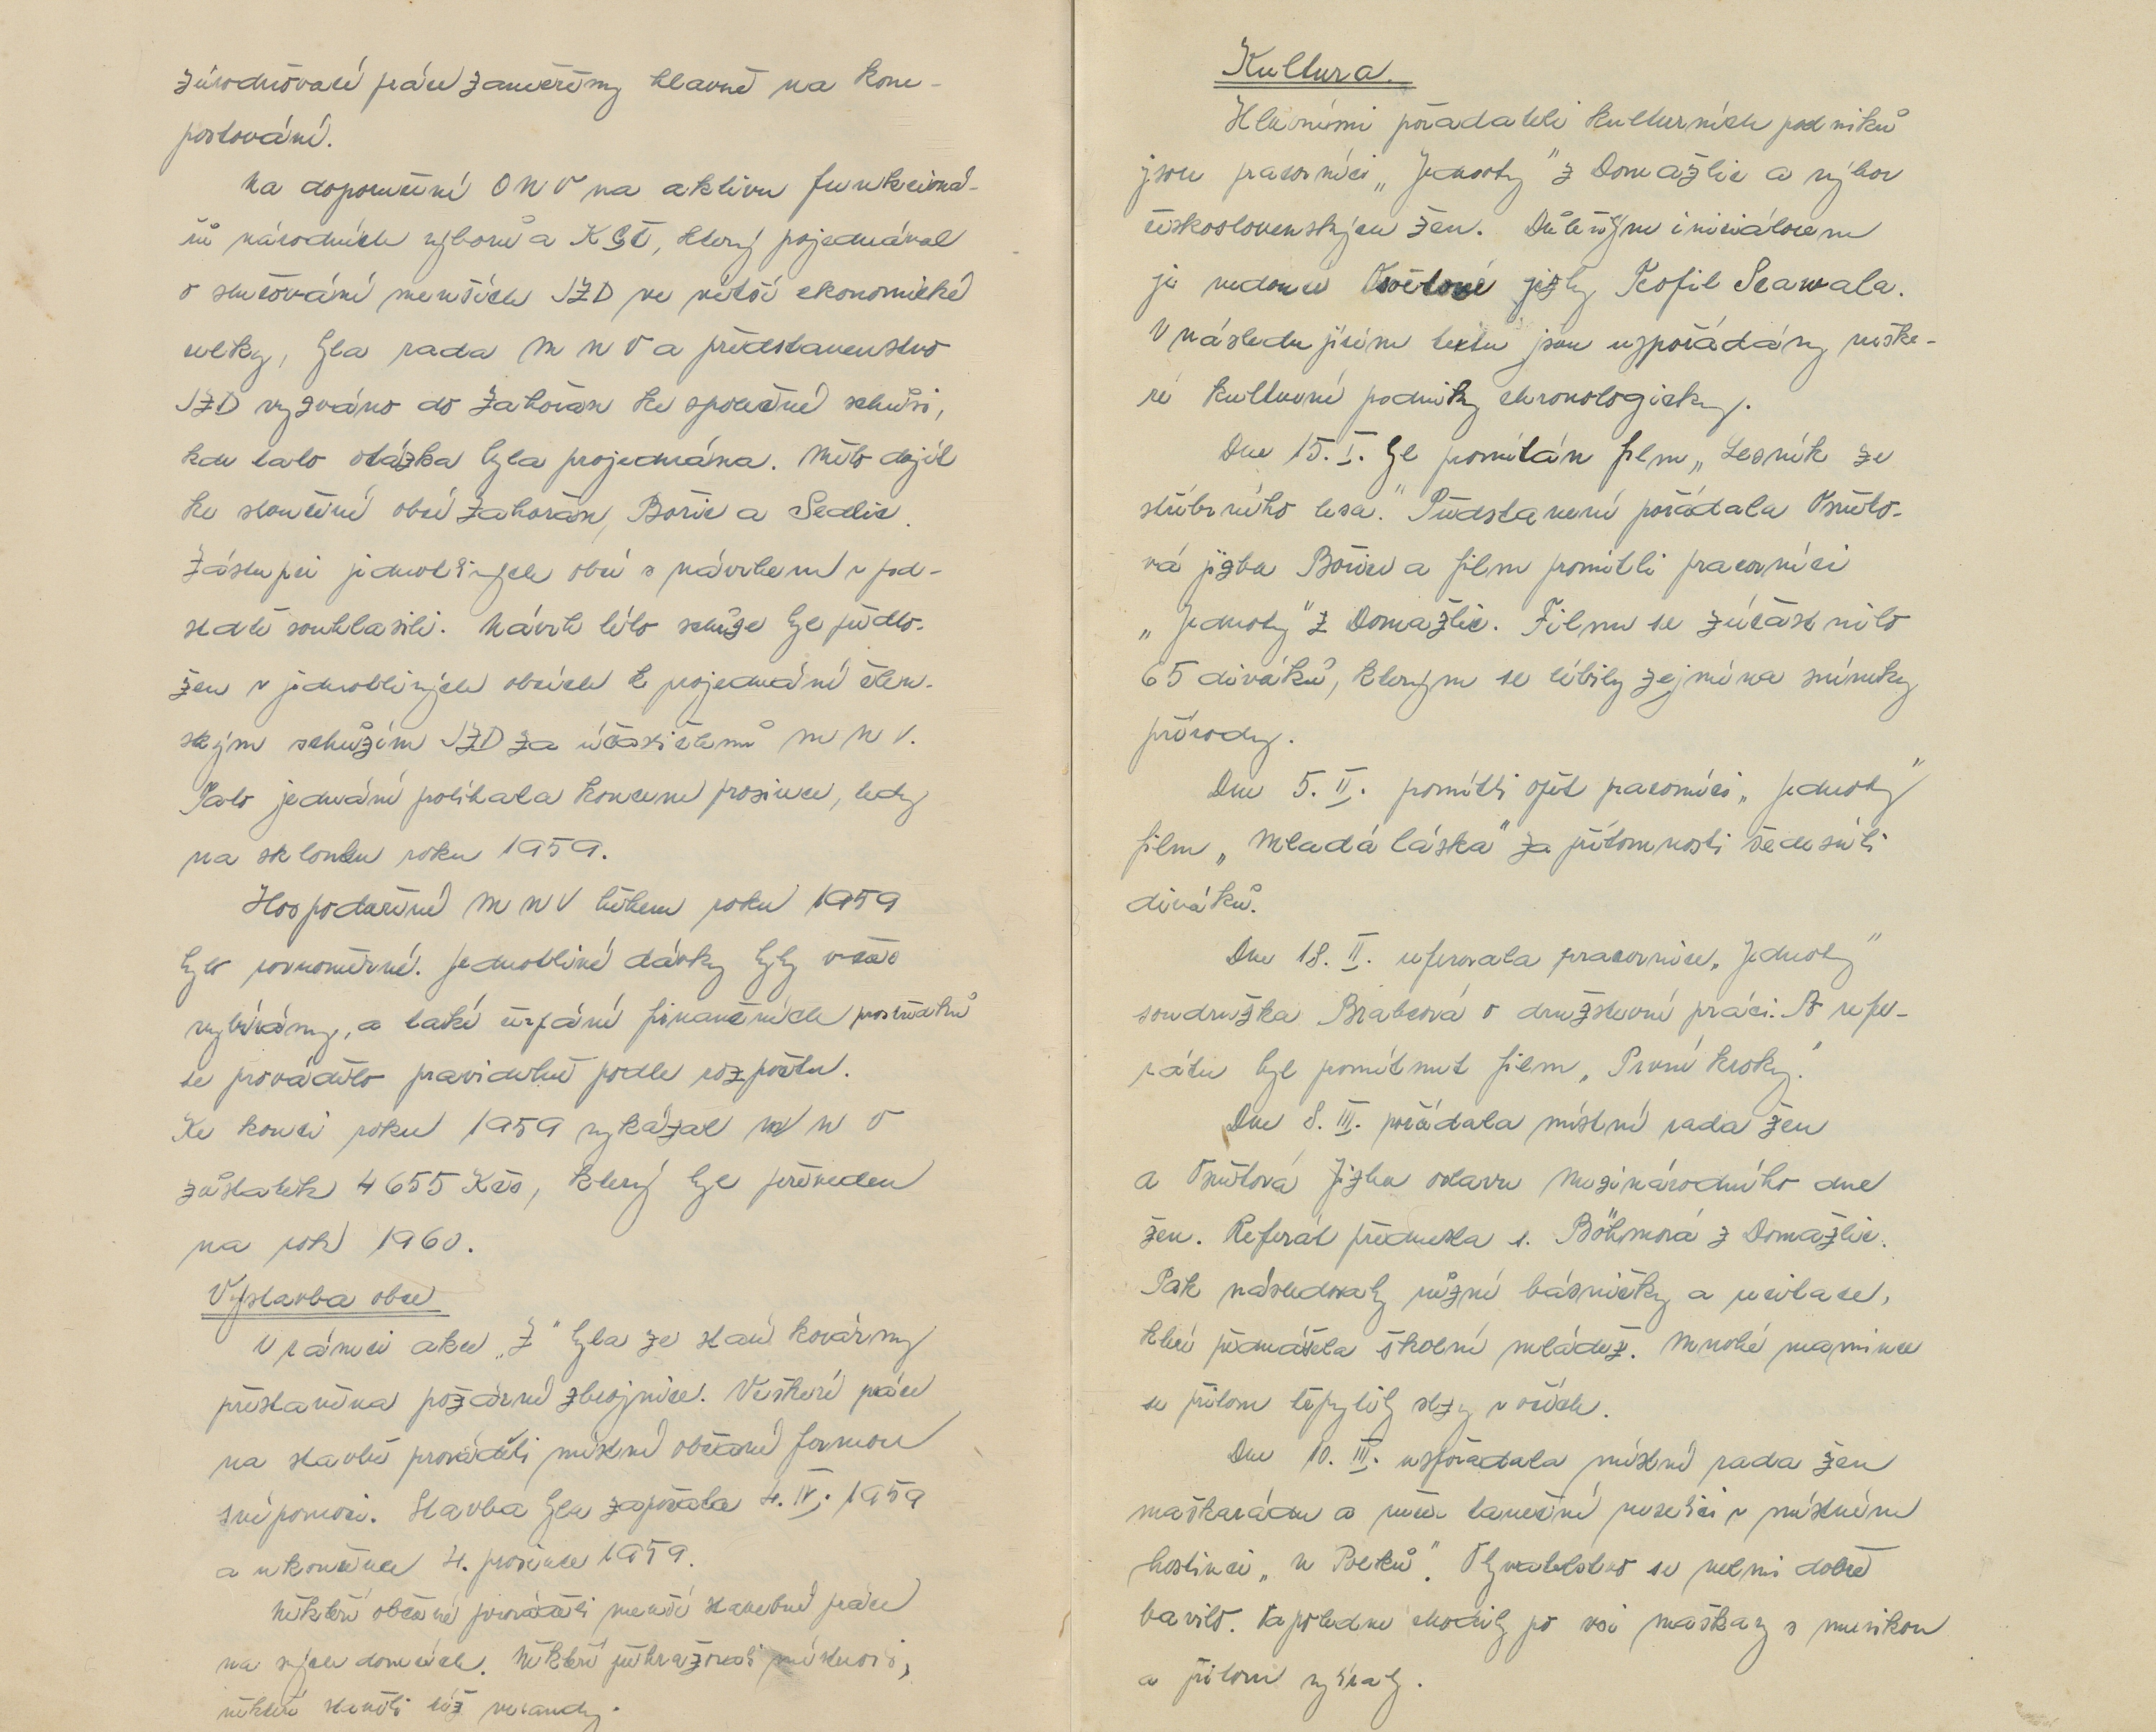 zúrodňovací práce zaměřeny hlavně na kom-
postování.
Na doporučení ONV na aktivu funkcioná-
řů národních výborů a KSČ, který pojednával
o slučování menších JZD ve větší ekonomické
celky, byla rada MNV a představenstvo
JZD vyzváno do Zahořan ke společné schůzi,
kde tato otázka byla projednána. Mělo dojít
ke sloučení obcí Zahořan, Bořic a Sedlic.
Zástupci jednotlivých obcí s návrhem v pod-
statě souhlasili. Návrh této schůze byl předlo-
žen v jednotlivých obcích k projednání člen-
ským schůzím JZD za účasti členů MNV.
Tato jednání probíhala koncem prosince, tedy
na sklonku roku 1959.
Hospodaření MNV během roku 1959
bylo rovnoměrné. Jednotlivé dávky byly včas
vybírány, a také čerpání finančních prostředků
se provádělo pravidelně podle rozpočtu.
Ke konci roku 1959 vykázal MNV
zůstatek 4655 Kčs, který byl převeden
na rok 1960.
Výstavba obce
V rámci akce „Z" byla ze staré kovárny
přestavěna požární zbrojnice. Veškeré práce
na stavbě prováděli místní občané formou
svépomoci. Stavba byla započata 4. IV. 1959
a ukončena 4. prosince 1959.
Někteří občané prováděli menší stavební práce
na svých domcích. Někteří přehrazovali místnosti,
někteří stavěli též verandy.
Kultura.
Hlavními pořadateli kulturních podniků
jsou pracovníci „Jednoty" z Domažlic a výbor
československých žen. Důležitým iniciátorem
je vedoucí Osvětové jizby Teofil Scawala.
V následujícím textu jsou uspořádány veške-
ré kulturní podniky chronologicky.
Dne 15. I. byl promítán film „Lesník ze
stříbrného lesa." Představení pořádala Osvěto-
vá jizba Bořice a film promítli pracovníci
„Jednoty" z Domažlic. Filmu se zúčastnilo
65 diváků, kterým se líbily zejména snímky
přírody.
Dne 5. II. promítli opět pracovníci „Jednoty"
film „Mladá láska" za přítomnosti šedesáti
diváků.
Dne 18. II. referovala pracovnice „Jednoty"
soudružka Brabcová o družstevní práci. Po refe-
rátu byl promítnut film „První kroky."
Dne 8. III. pořádala místní rada žen
a Osvětová jizba oslavu Mezinárodního dne
žen. Referát přednesla s. Böhmová z Domažlic.
Pak následovaly různé básničky a recitace,
které přednášela školní mládež. Mnohé mamince
se přitom třpytily slzy v očích.
Dne 10. III. uspořádala místní rada žen
maškarádu a večer taneční veselici v místním
hostinci „U Polků". Obyvatelstvo se velmi dobře
bavilo. Dopoledne chodily po vsi maškary s muzikou
a přitom vybíraly.